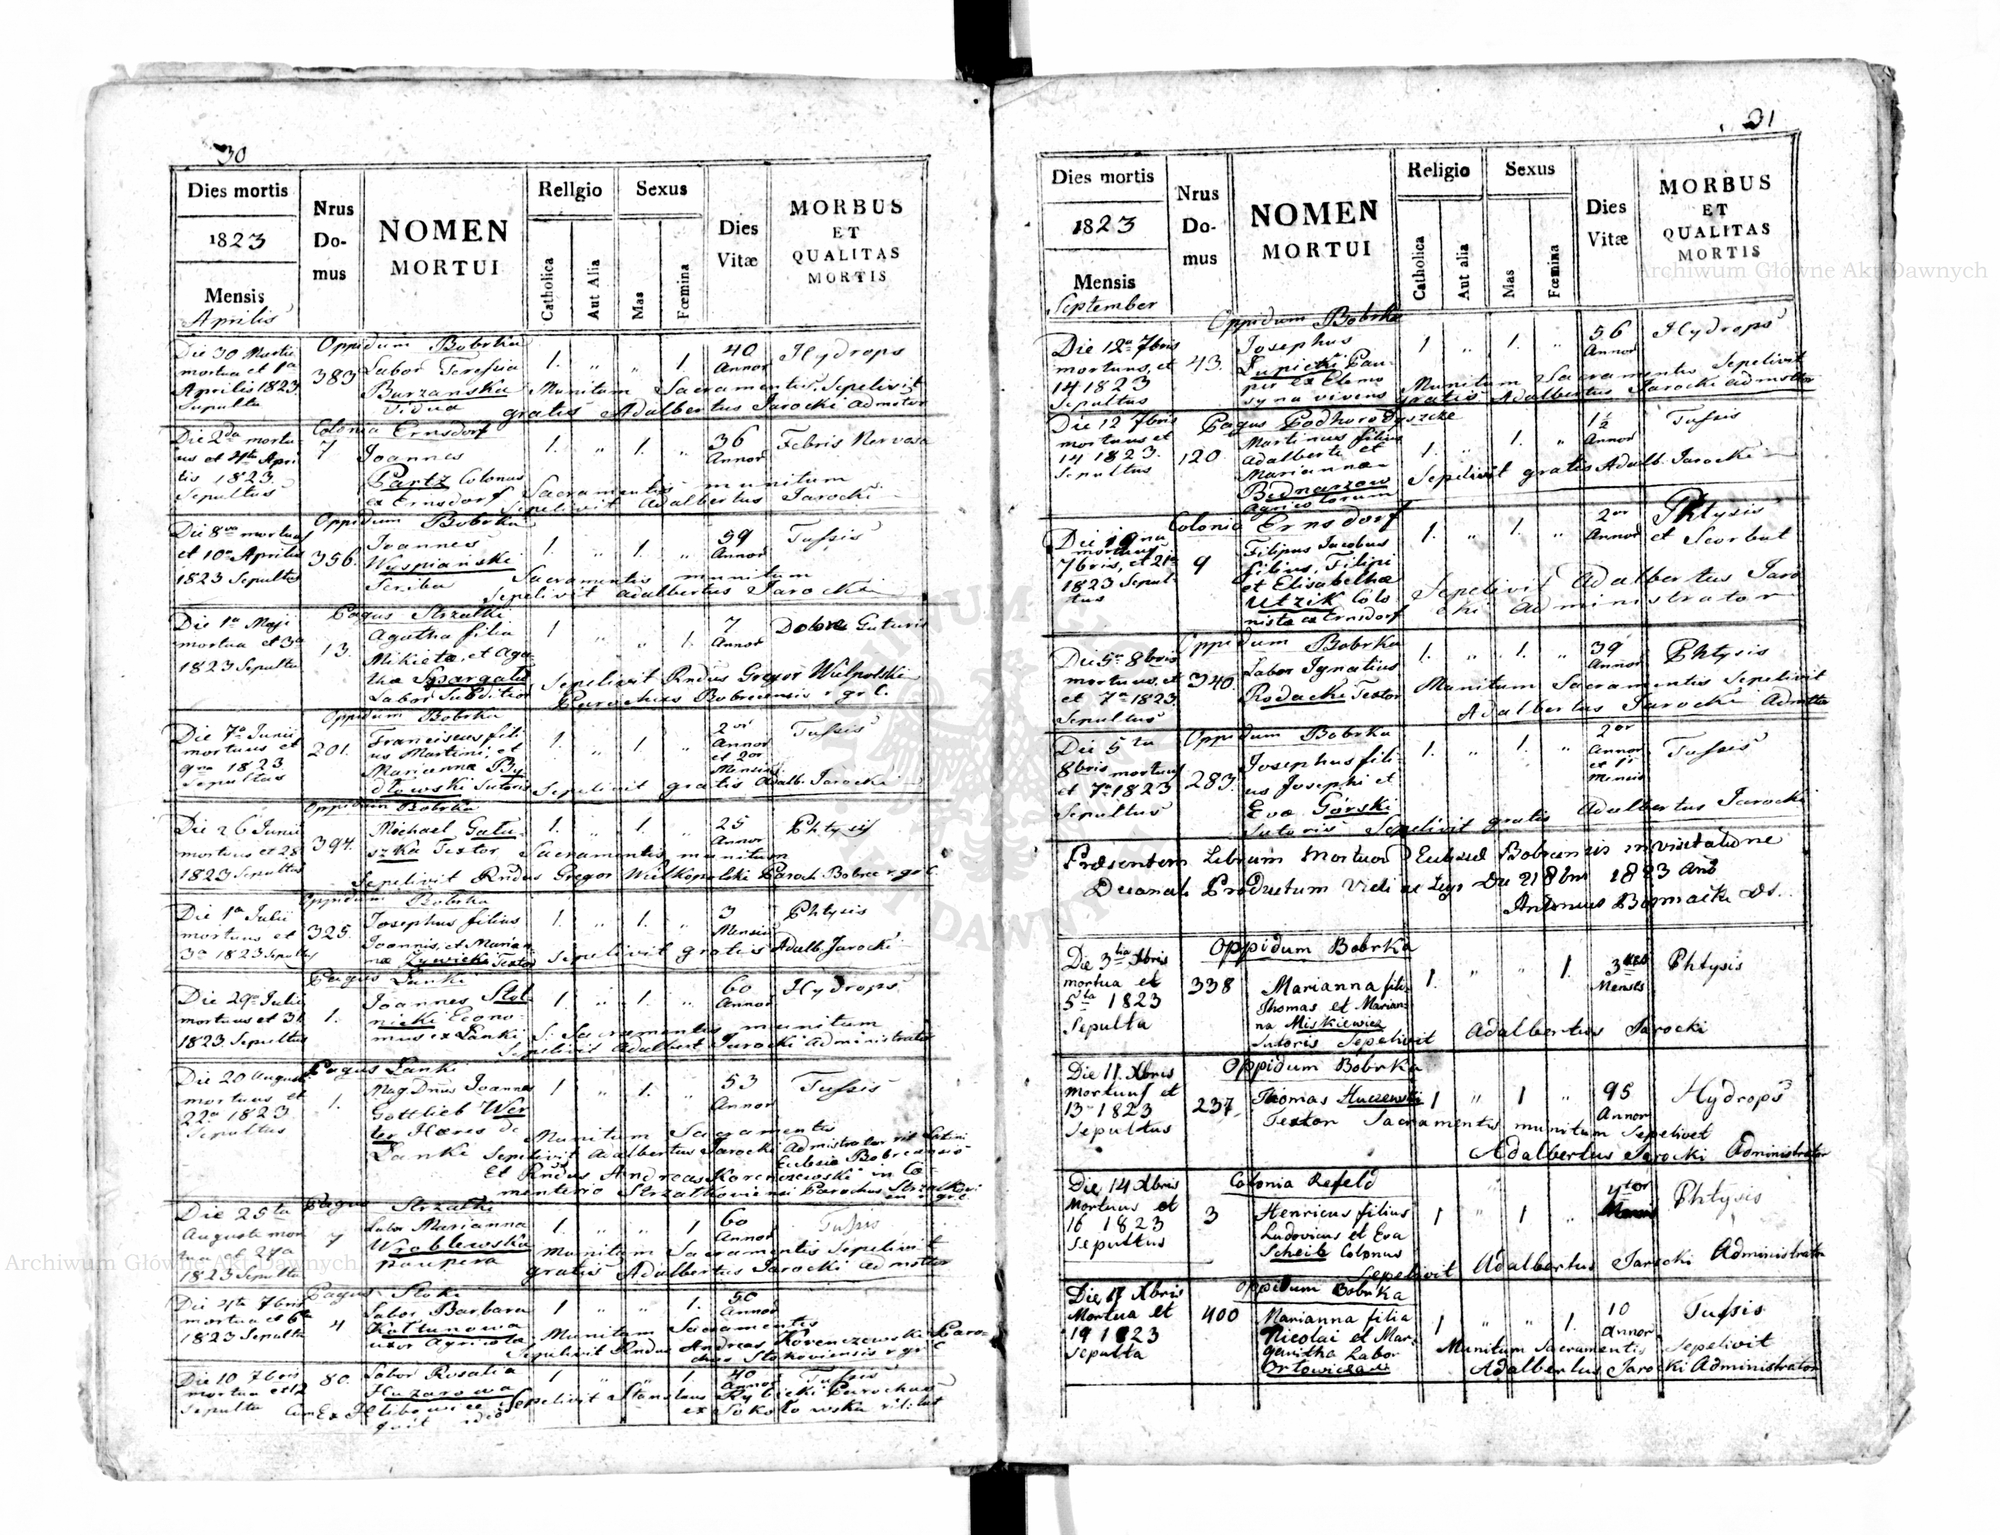 30
Dies mortis
1823
Mensis
Aprilis
Nrus Do- mus
NOMEN
MORTUI
Religio
Catholica
Aut Alia
Sexus
Mas
Fœmina
Dies Vitæ
MORBUS
ET
QUALITAS
MORTIS
Oppidum Bobrka
Die 30 Martii mortua et 1a Aprilis 1823 Sepulta
383
Labor Teressia Burzanska Vidua
1. „ „ 1.
40 Annor
Hydrops
Munitum Sacramentis Sepelivit
gratis Adalbertus Jarocki Admstor
Colonia Ernsdorf
Die 2da mortu- us et 4ta Apri lis 1823 Sepultus
7
Joannes Partz Colonus ex Ernsdorf
1. „ 1. „
36 Annor
Febris Nervosa
Sacramentis munitum
Sepelivit Adalbertus Jarocki
Oppidum Bobrka
Die 8va mortuus et 10a Aprilis 1823 Sepultus
356.
Joannes Wyspianski Scriba
1. „ 1. „
59 Annor
Tussis
Sacramentis munitum
Sepelivit Adalbertus Jarocki
Pagus Strzalki
Die 1a Maji mortua et 3a 1823 Sepulta
13.
Agatha filia Mikieta, et Aga tha Labor Subditior
1 „ „ 1.
7 Annor
Dolore Guturis
Sepelivit Rndus Gregor Wielpolski
Parochus Bobrecensis r. gr. C.
Oppidum Bobrka
Die 7a Junii mortuus et 9na 1823 Sepultus
201.
Franciscus fili us Martini, et Marianna By dlowski Sutoris
1. „ 1. „
2or Annor et 2or Mensium
Tussis
Sepelivit gratis Adalb. Jarocki
Oppidum Bobrka
Die 26 Junii mortuus et 28 1823 Sepultus
394.
Michael Galu- szka Textor
1. „ 1. „
25 Annor
Phtysis
Sacramentis munitum
Sepelivit Rndus Gregor Wielkopolski Paroch Bobrec r. gr. C.
Oppidum Bobrka
Die 1a Julii mortuus et 3a 1823 Sepultus
325.
Josephus filius Joannis, et Marian næ Zywicki Textor
1. „ 1. „
3 Mensium
Phtysis
Sepelivit gratis Adalb. Jarocki
Pagus Lanki
Die 29a Julii mortuus et 31 1823 Sepultus
1.
Joannes Stol- nicki Econo- mus ex Lanki
1. „ 1. „
60 Annor
Hydrops
S. Sacramentis munitum
Sepelivit Adalbert Jarocki Administrator
Pagus Lanki
Die 20 August mortuus et 22a 1823 Sepultus
1.
Mag. Dnus Joannes Gottlieb Wer ter Hæres de Lanki
1 „ 1. „
53 Annor
Tussis
Munitum Sacramentis
Sepelivit Adalbertus Jarocki Administrator rit Latini
Eclesiæ Bobrecensis
Et Rndus Andreas Korenczewski in Cæ-
menterio Strzalkoviensi Parochus Strzalkovi
Pagus Strzalki
Die 25ta Augusti mor tua et 27a 1823 Sepulta
7
Labor Marianna Wroblewska paupera
1. „ „ 1
60 Annor
Tussis
Munitum Sacramentis Sepelivit
gratis Adalbertus Jarocki admstor
Pagus Stoki
Die 4ta 7bris mortua et 6a 1823 Sepulta
4
Labor Barbara Koltunowa uxor Agricola
1 „ „ 1.
50 Annor
Munitum Sacramentis
Sepelivit Rndus Andreas Korenczewski Paro-
chus Stokoviensis r. gr. C
Die 10 7bris mortua et 12 Sepulta
80.
Labor Rosalia Huzarowa
1 „ „ 1.
40 Annor
Tussis
Sepelivit Stanislaus Rybicki Parochus
ex Sokolowska
31
Dies mortis
1823
Mensis
September
Nrus Do- mus
NOMEN
MORTUI
Religio
Catholica
Aut alia
Sexus
Mas
Fœmina
Dies Vitæ
MORBUS
ET
QUALITAS
MORTIS
Oppidum Bobrka
Die 12a 7bris mortuus, et 14 1823 Sepultus
43.
Josephus Lupicki Pau- per ex Elemo syna vivens
1 „ 1. „
56 Annor
Hydrops
Munitum Sacramentis Sepelivit
gratis Adalbertus Jarocki admstor
Pagus Podhorodyszcze
Die 12 7bris mortuus et 14 1823. Sepultus
120.
Martinus filius Adalberti et Marianna Bednarzow Agricolarum
1. „ 1. „
1½ Annor
Tussis
Sepelivit gratis Adalb. Jarocki
Colonia Ernsdorf
Die 19na mortuus 7bris, et 21a 1823 Sepul- tus
9
Filipus Jacobus filius, Filipi et Elisabethæ Utzik Colo nista ex Ernsdorf
1. „ 1. „
2or Annor
Phtysis et Scorbut
Sepelivit Adalbertus Jaro
cki Administrator
Oppidum Bobrka
Die 5a 8bris mortuus, et et 7a 1823 Sepultus
340.
Labor Ignatius Rodacki Textor
1. „ 1. „
39 Annor
Phtysis
Munitum Sacramentis Sepelivit
Adalbertus Jarocki Admstor
Oppidum Bobrka
Die 5ta 8bris mortuus et 7a 1823 Sepultus
283.
Josephus fili- us Josephi et Eva Górski Sutoris
1. „ 1. „
2or Annor et 1i Mensis
Tussis
Sepelivit gratis Adalbertus Jarocki
Præsentem Librum Mortuor Eclesiæ Bobrcensis in visitatione
Decanali Productum Vidi ac Legi Die 21 8bris 1823 Ano
Antonius
Oppidum Bobrka
Die 3tia Xbris mortua et 5ta 1823 Sepulta
338
Marianna fili Thomas et Marian- na Miskiewicz Sutoris
1. „ „ 1.
3 Menses
Phtysis
Sepelivit Adalbertus Jarocki
Oppidum Bobrka
Die 11. Xbris Mortuus et 13 1823 Sepultus
237.
Thomas Huczewski Textor
1 „ 1 „
95 Annor
Hydrops
Sacramentis munitum Sepelivet
Adalbertus Jarocki Administrator
Colonia Refeld
Die 14 Xbris Mortuus et 16 1823 Sepultus
3
Henricus filius Ludovicus et Eva Scheib Colonus
1 „ 1 „
4tor
Phtysis
Sepelivit Adalbertus Jarocki Administrator
Oppidum Bobrka
Die 17 Xbris Mortua et 19 1823 Sepulta
400
Marianna filia Nicolai et Mar- garitha Labor Orłowiczow
1 „ „ 1.
10 Annor
Tussis
Munitum Sacramentis Sepelivit
Adalbertus Jarocki Administrator
Archiwum Główne Akt Dawnych
Archiwum Główne Akt Dawnych